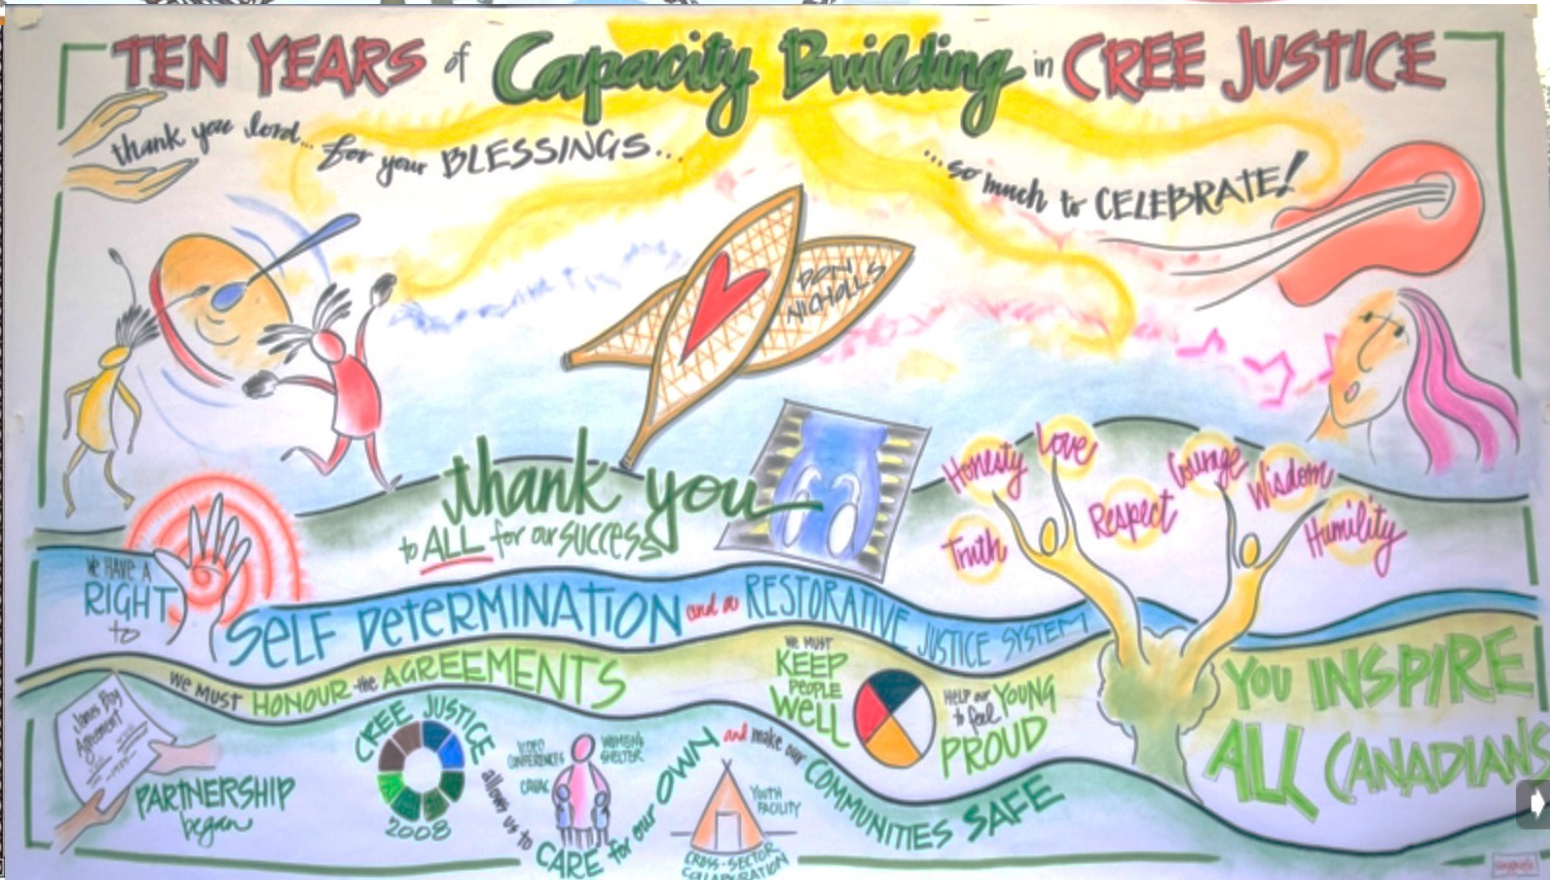 TEN YEARS of Capacity Building in CREE JUSTICE
thank you lord... for your BLESSINGS...
...so much to CELEBRATE!
DON
NICHOLLS
thank you
to ALL for our SUCCESS
Honesty
Love
Courage
Wisdom
Respect
Truth
Humility
WE HAVE A
RIGHT
to
SELF DETERMINATION and a RESTORATIVE JUSTICE SYSTEM
WE MUST HONOUR the AGREEMENTS
WE MUST
KEEP
PEOPLE
WELL
HELP our YOUNG
to feel
PROUD
YOU INSPIRE
ALL CANADIANS
James Bay
Agreement
PARTNERSHIP
began
CREE JUSTICE
2008
allows us to CARE for our OWN and make our COMMUNITIES SAFE
VIDEO
CONFERENCES
WOMEN'S
SHELTER
CAVAC
YOUTH
FACILITY
CROSS-SECTOR
COLLABORATION